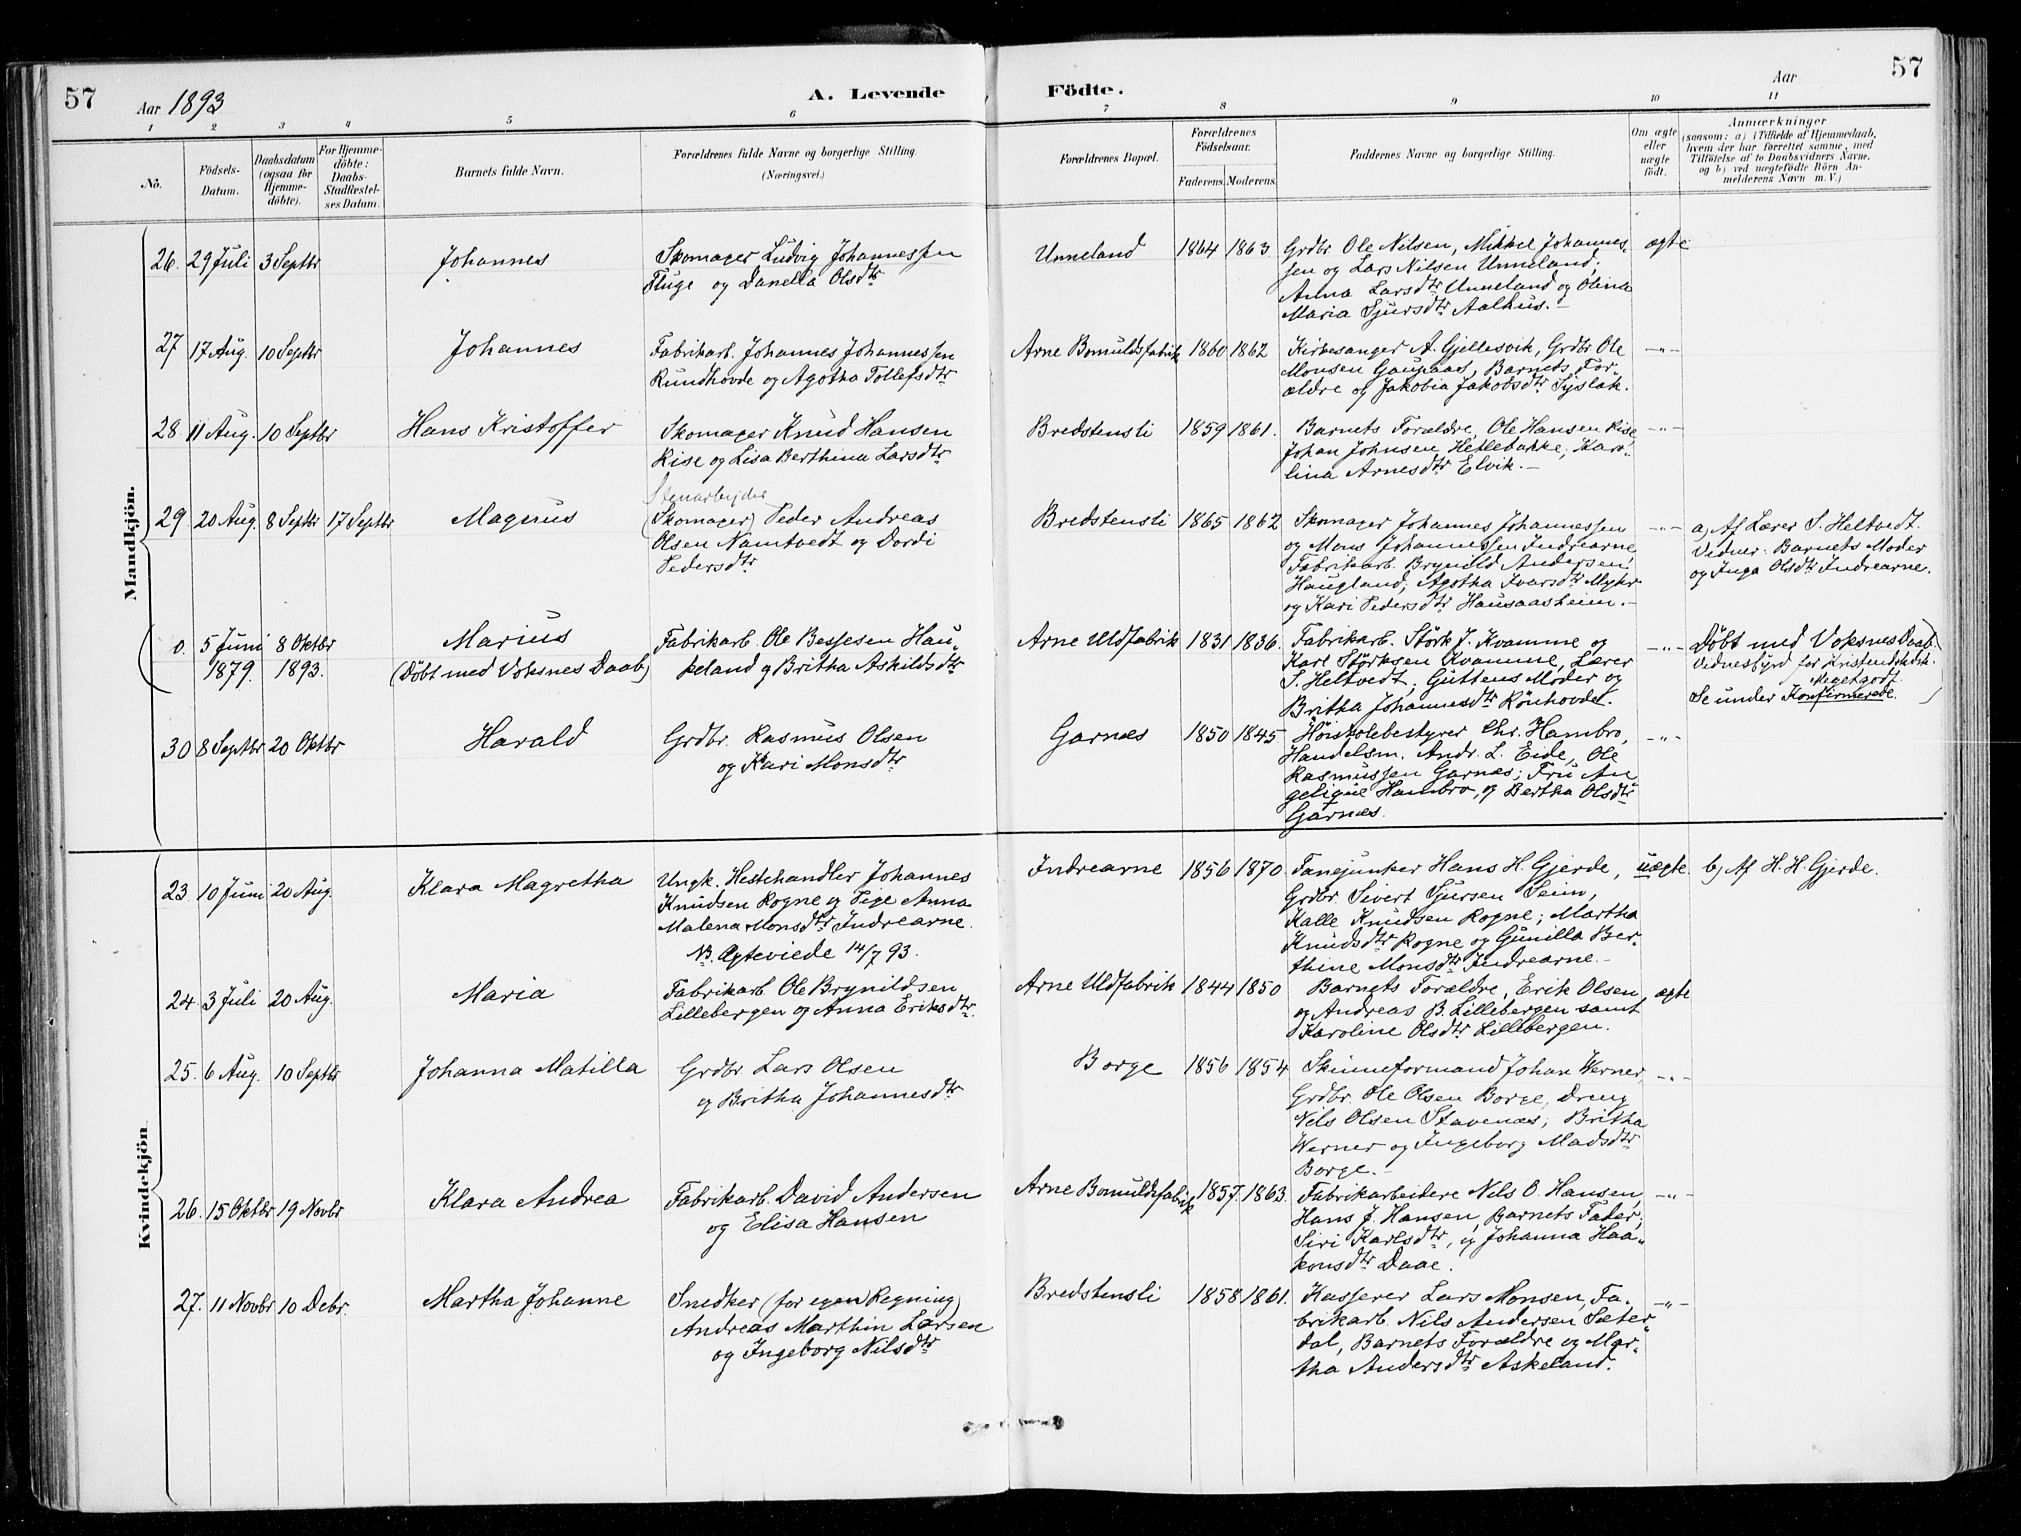 57
Aar 1893
A. Levende Födte.
Aar
57
1 2 3 4 5 6 7 8 9 10 11
No.
Födsels-
Datum.
Daabsdatum
(ogsaa for
Hjemme-
döbte).
For Hjemme-
döbte:
Daabs-
Stadfæstel-
ses Datum.
Barnets fulde Navn.
Forældrenes fulde Navne og borgerlige Stilling.
(Næringsvei.)
Forældrenes Bopæl.
Forældrenes
Födselsaar.
Faderens. Moderens.
Faddernes Navne og borgerlige Stilling.
Om ægte
eller
uægte
födt.
Anmærkninger
(saasom: a) i Tilfælde af Hjemmedaab,
hvem der har forrettet samme, med
Tilföielse af to Daabsvidners Navne,
og b) ved uægtefödte Börn An-
melderens Navn m. V.)
Mandkjön.
26. 29 Juli 3 Septbr
Johannes
Skomager Ludvig Johannessen
Fluge og Danella Olsdtr
Unneland 1864 1863
Grdbr Ole Nilsen, Mikkel Johannes-
sen og Lars Nilsen Unneland;
Anna Larsdtr Unneland og Olina
Maria Sjursdtr Aalhus.-
ægte
27 17 Aug. 10 Septbr
Johannes
Fabrikarb. Johannes Johannessen
Rundhovde og Agotha Tollefsdtr
Arne Bomuldsfabrik 1860 1862
Kirkesanger A. Gjellesvik, Grdbr Ole
Monsen Gaupaas, Barnets For-
ældre og Jakobia Jakobsdtr Syslak.
-"-
28. 11 Aug. 10 Septbr
Hans Kristoffer
Skomager Knud Hansen
Rise og Lisa Berthina Larsdtr
Bredstensli 1859 1861.
Barnets Forældre, Ole Hansen Rise,
Johan Johnsen Hetlebakke, Karo-
lina Arnesdtr Elvik.-
-"-
29 20 Aug. 8 Septbr 17 Septbr
Magnus
Stenarbejder
(Skomager) Peder Andreas
Olsen Namtvedt og Dordi
Pedersdtr
Bredstensli 1865 1862
Skomager Johannes Johannessen
og Mons Johannessen Indrearne,
Fabrikarb. Brynild Andersen
Haugland; Agotha Ivarsdtr Mykr
og Kari Pedersdtr Hausaasheim.-
-"-
a) Af Lærer S. Heltvedt.
Vidner: Barnets Moder
og Inga Olsdtr Indrearne.
0. 5 Juni 8 Oktbr
1879. 1893.
Marius
(Döbt med Voksnes Daab)
Fabrikarb. Ole Bessesen Hau-
keland og Britha Askildsdtr
Arne Uldfabrik 1831 1836.
Fabrikarb. Störk J. Kvamme og
Karl Störksen Kvamme, Lærer
S. Heltvedt; Guttens Moder og
Britha Johannesdtr Rönhovde.
-"-
Döbt med Voksnes Daab.
Vidnesbyrd for Kristendsk.
Megetgodt.
Se under Konfirmerede.
30 8 Septbr 20 Oktbr
Harald
Grdbr. Rasmus Olsen
og Kari Monsdtr
Garnæs 1850 1845
Höiskolebestyrer Chr. Hambro,
Handelsm. Andr. L. Eide, Ole
Rasmussen Garnæs; Fru An-
gelique Hambro, og Bertha Olsdtr
Garnæs.
-"-
Kvindekjön
23. 10 Juni 20 Aug.
Klara Magretha
Ungk. Hestehandler Johannes
Knudsen Rogne og Pige Anna
Malena Monsdtr Indrearne.
NB. Ægteviede 14/7 93.
Indrearne 1856 1870
Fanejunker Hans H. Gjerde,
Grdbr. Sivert Sjursen Seim,
Kalle Knudsen Rogne; Martha
Knudsdtr Rogne og Gunilla Ber-
thine Monsdtr Indrearne.-
uægte.
b) Af H. H. Gjerde.
24. 3 Juli 20 Aug.
Maria
Fabrikarb. Ole Brynildsen
Lillebergen og Anna Eriksdtr.
Arne Uldfabrik 1844 1850
Barnets Forældre, Erik Olsen
og Andreas B. Lillebergen samt
Karoline Olsdtr Lillebergen.
ægte
25. 6 Aug. 10 Septbr
Johanna Matilla
Grdbr Lars Olsen
og Britha Johannesdtr
Borge 1856 1854
Skinneformand Johan Werner,
Grdbr. Ole Olsen Borge, Dreng
Nils Olsen Stavenæs; Britha
Werner og Ingeborg Madsdtr
Borge.-
-"-
26. 15 Oktbr 19 Novbr
Klara Andrea
Fabrikarb. David Andersen
og Elisa Hansen
Arne Bomuldsfabrik 1857. 1863.
Fabrikarbeidere Nils O. Hansen,
Hans J. Hansen, Barnets Fader;
Siri Karlsdtr, og Johanna Haa-
konsdtr Daae.
-"-
27. 11 Novbr 10 Debr.
Martha Johanne
Snedker (for egen Regning)
Andreas Marthin Larsen
og Ingeborg Nilsdtr
Bredstensli 1858 1861.
Kasserer Lars Monsen, Fa-
brikarb. Nils Andersen Sæter-
dal, Barnets Forældre og Mar-
tha Andersdtr Askeland.
-"-